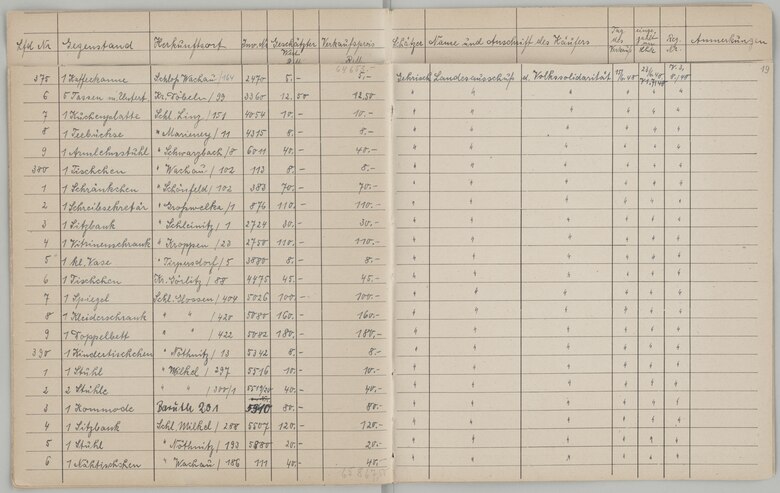 Lfd Nr Gegenstand Herkunftsort Inv. Nr Geschätzter Wert RM Verkaufspreis RM Schätzer Name und Anschrift des Käufers Tag des Verkaufs Reg. Nr. Anmerkungen
19
375 1 Kaffeekanne Schloß Wachau/164 2470 5.- 5.- Gehrisch Landesausschuß d. Volkssolidarität
6 5 Tassen m. Untert. Kr. Döbeln/99 3360 12.50 12,50 " " " " " "
7 1 Küchenplatte Schl. Linz/151 4054 10.- 10.- " " " " " "
8 1 Teebüchse " 11 4315 8.- 8.- " " " " " "
9 1 Armlehnstuhl " Schwarzbach/8 6011 40.- 40.- " " " " " "
380 1 Tischchen " Wachau/102 113 8.- 8.- " " " " " "
1 1 Schränkchen " Schönfeld/102 383 70.- 70.- " " " " " "
2 1 Schreibsekretär " Großwelka/1 874 110.- 110.- " " " " " "
3 1 Sitzbank " Schleinitz/1 2724 30.- 30.- " " " " " "
4 1 Vitrinenschrank " Kroppen/23 2750 110.- 110.- " " " " " "
5 1 kl. Vase " 5 3880 8.- 8.- " " " " " "
6 1 Tischchen Kr. Görlitz/88 4475 45.- 45.- " " " " " "
7 1 Spiegel Schl. Glossen/404 5026 100.- 100.- " " " " " "
8 1 Kleiderschrank " " /420 5080 160.- 160.- " " " " " "
9 1 Doppelbett " " /422 5082 180.- 180.- " " " " " "
390 1 Kindertischchen " Nöthnitz/13 5342 8.- 8.- " " " " " "
1 1 Stuhl " Milkel/297 5516 10.- 10.- " " " " " "
2 2 Stühle " " /300/1 40.- 40.- " " " " " "
3 1 Kommode Baruth 291 80.- 80.- " " " " " "
4 1 Sitzbank Schl. Milkel/288 5507 120.- 120.- " " " " " "
5 1 Stuhl " Nöthnitz/193 5880 20.- 20.- " " " " " "
6 1 Nähtischchen " Wachau/186 111 40.- 40.- " " " " " "